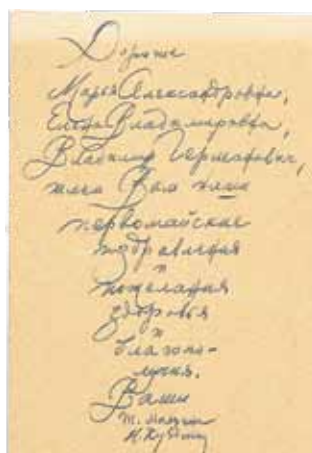 Дорогие
Марья Александровна,
Елена Владимировна,
Владимир Германович,
шлем Вам наши
первомайские
поздравления
и
пожелания
здоровья
и
благопо-
лучия.
Ваши